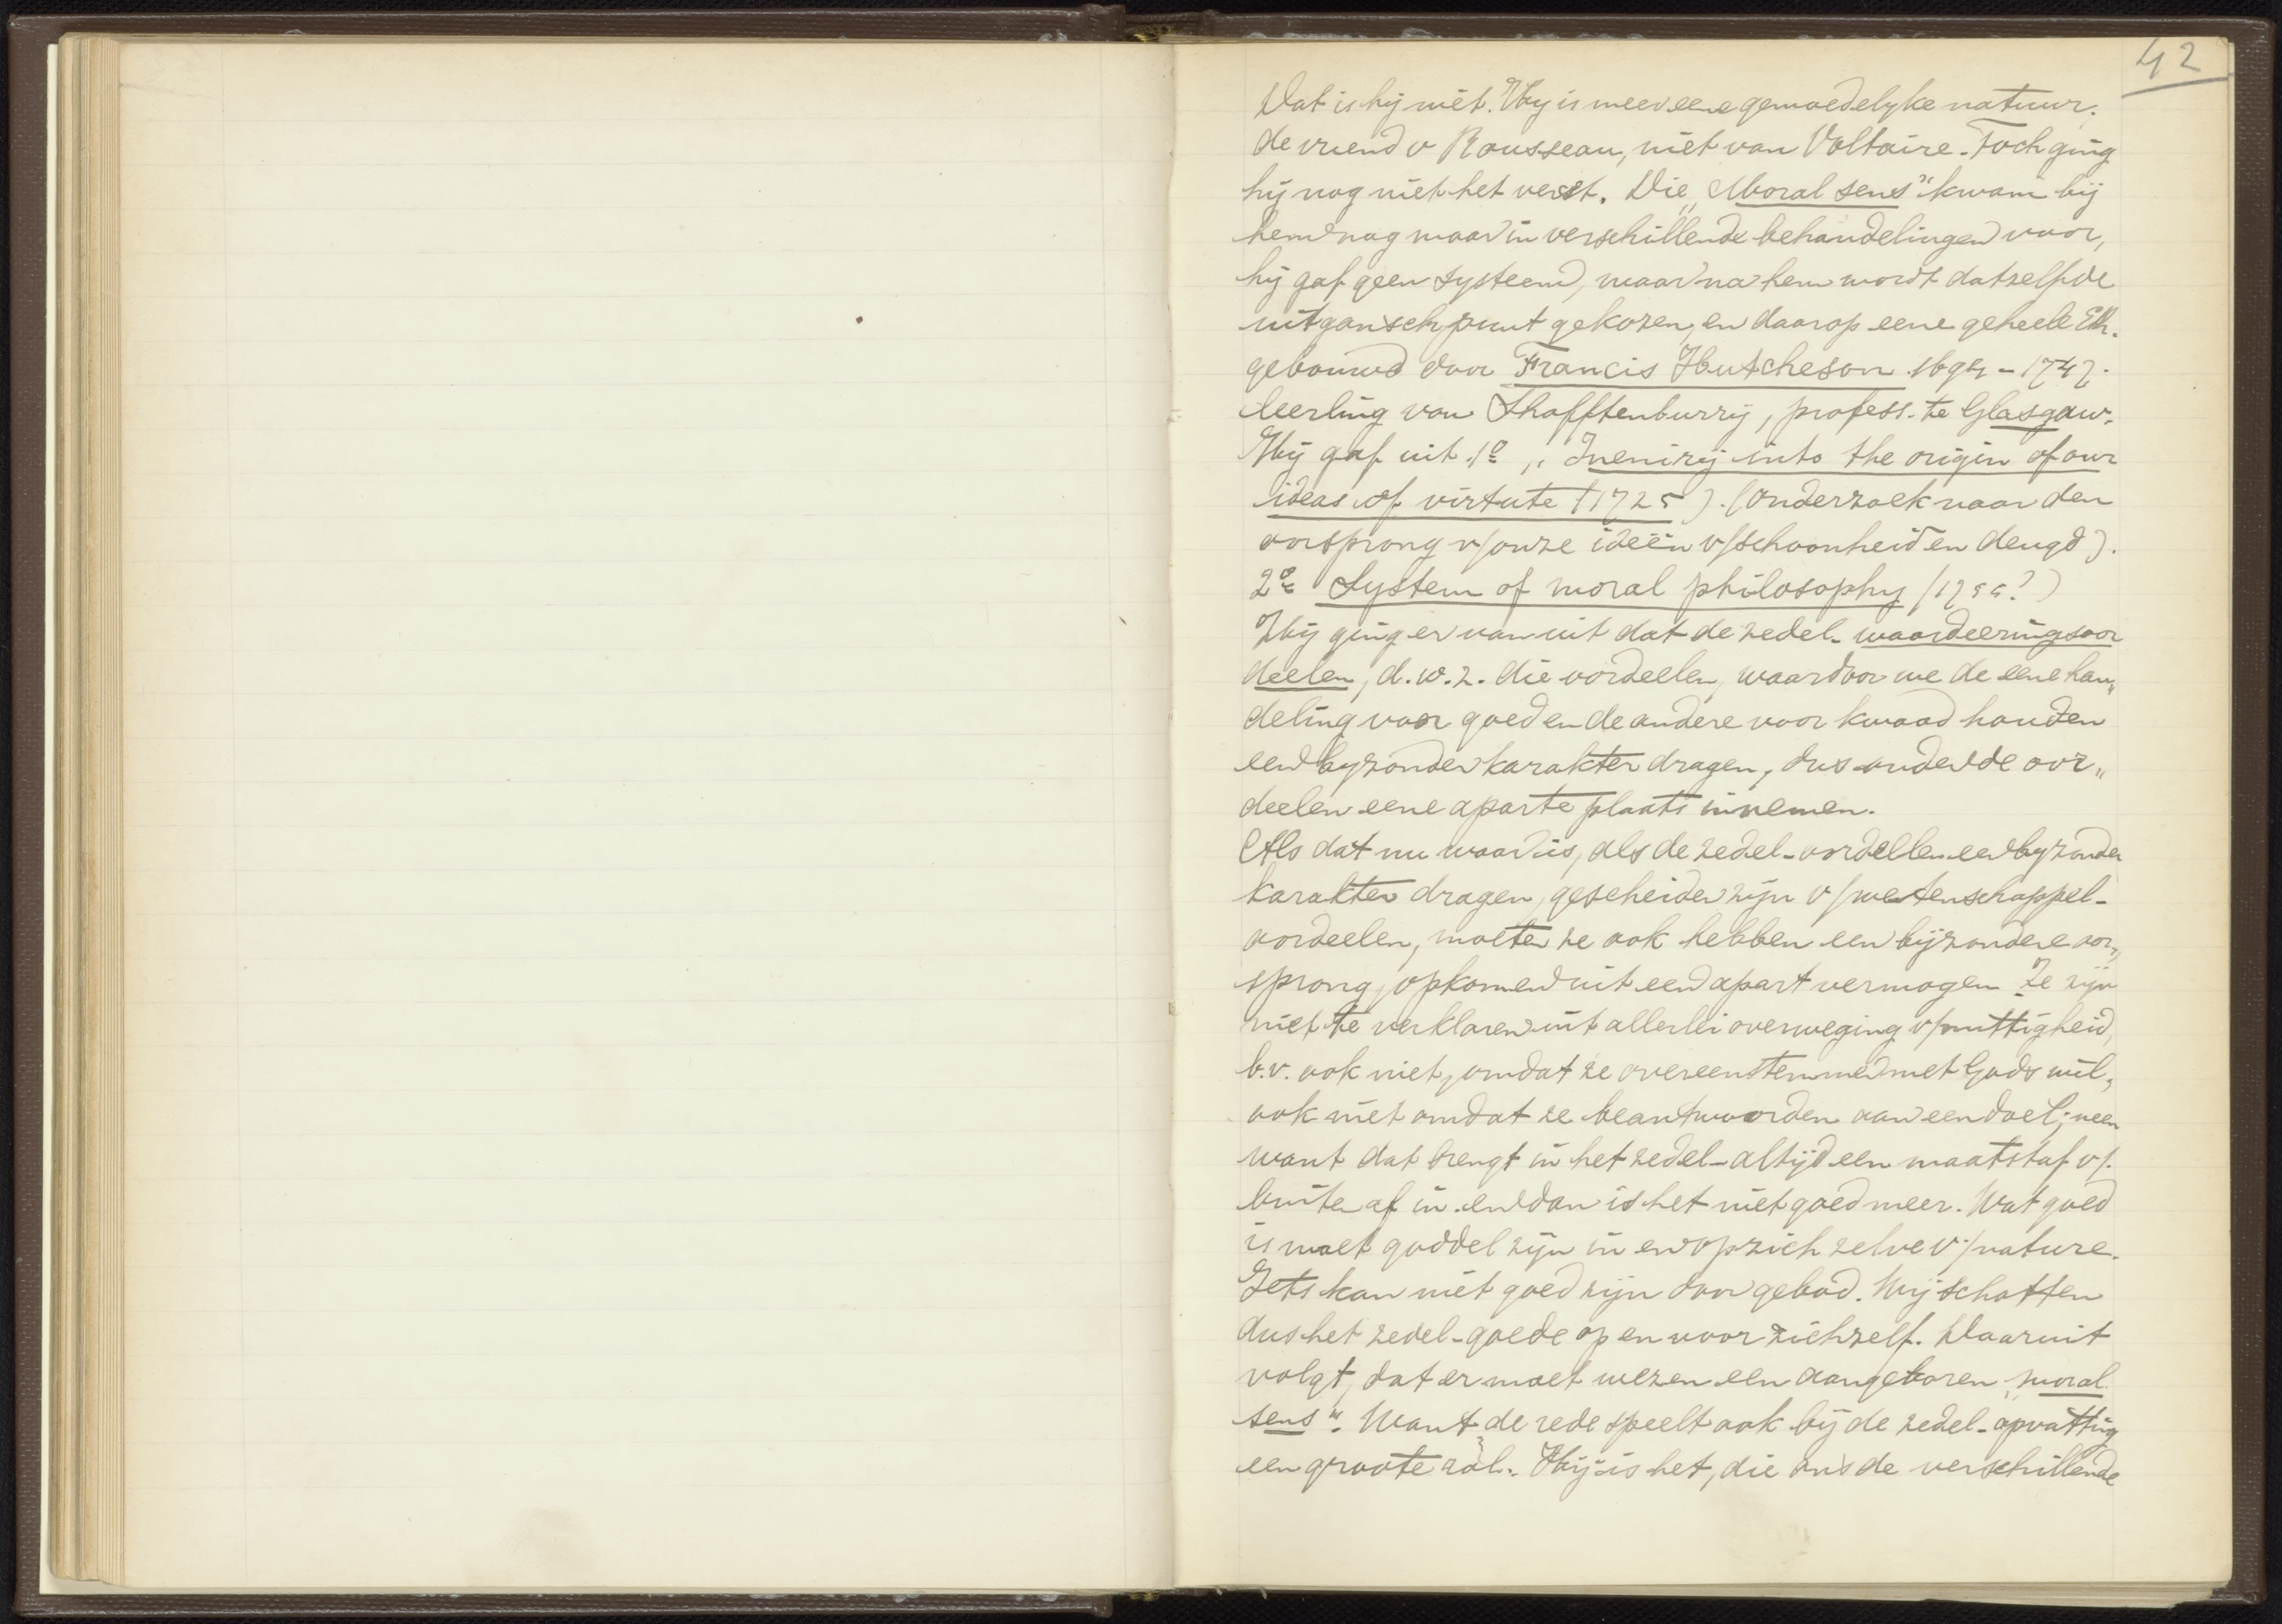 42
Dat is hij niet. Hij is meer eene gemoedelyke natuur.
de vriend v Rousseau, niet van Voltaire. Toch ging
hij nog niet het verst. Die „Moral sens" kwam bij
hem nog maar in verschillende behandelingen voor,
hij gaf geen systeem, maar na hem wordt datzelfde
uitganschpunt gekozen, en daarop eene geheele Eth.
gebouwd door Francis Hutcheson 1694 - 1747.
leerling van Shafftenburrij, profess. te Glasgow.
Hij gaf uit 1º „ Inenirij into the origin of our
ideas of virtute (1725). (Onderzoek naar den
oorsprong v/onze ideën v/schoonheid en deugd).
2º System of moral philosophy (1755?)
Hij ging er van uit dat de zedel- waardeeringsoor
deelen, d.w.z. die oordeelen, waardoor we de eene han„
deling voor goed en de andere voor kwaad houden
een byzonder karakter dragen, dus onder de oor„
deelen eene aparte plaats innemen.
Als dat nu waar is, als de zedel-oordellen een byzonder
karakter dragen, gescheiden zijn v/wetenschappel-
oordeelen, moeten ze ook hebben een bijzondere oor„
sprong, opkomen uit een apart vermogen. Ze zijn
niet te verklaren uit allerlei overweging v/nuttigheid,
b.v. ook niet, omdat ze overeenstemmen met Gods wil,
ook niet omdat ze beantwoorden aan een doel; neen
want dat brengt in het zedel-altijd een maatstaf v/.
buiten af in. en dan is het niet goed meer. Wat goed
is moet goddel zijn in en op zich zelve v/nature.
Iets kan niet goed zijn door gebod. Wij schatten
dus het zedel-goede op en voor zichzelf. Daaruit
volgt, dat er moet wezen een aangeboren „moral
sens". Want de rede speelt ook bij de zedel-opvatting
een groote rol. Hij is het, die ons de verschillende